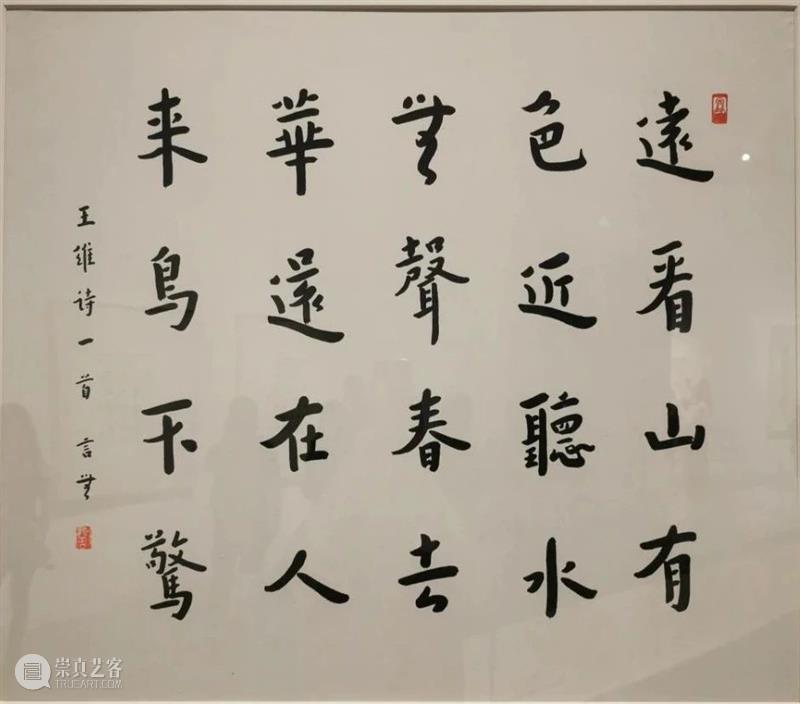 遠看山有
色近聽水
無聲春去
華還在人
来鳥不驚
王維诗一首 言無
崇真艺客
TRUEART.COM